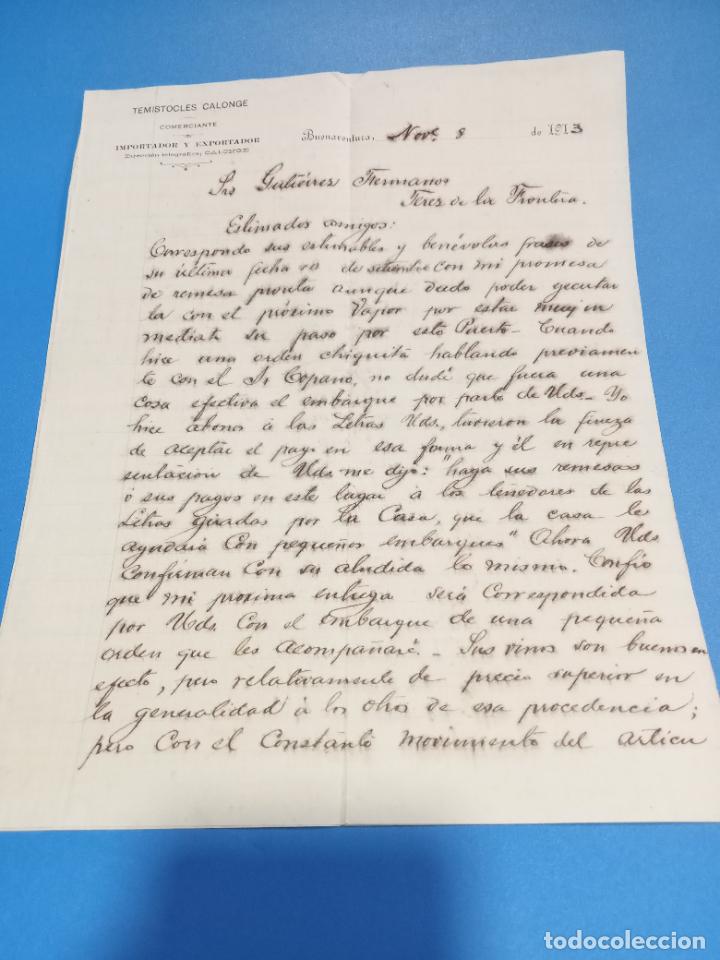 TEMISTOCLES CALONGE
COMERCIANTE
IMPORTADOR Y EXPORTADOR
Dirección telegráfica, CALONGE
Buenaventura, Novᵉ 8 de 1913
Srs Gutiérrez Hermanos
Jerez de la Frontera.
Estimados amigos:
Correspondo sus estimables y benévolas frases de
su última fecha de setiembre con mi promesa
de remesa pronta aunque dudo poder ejecutar
la con el próximo Vapor por estar muy in
mediato su paso por esto Puerto - Cuando
hice una orden chiquita hablando previamen
te con el Sr Copano, no dudé que fuera una
cosa efectiva el embarque por parte de Uds. - Yo
hice abonos á las Letras Uds, tuvieron la fineza
de aceptar el pago en esa forma y él en repre
sentación de Uds me dijo: "haga sus remesas
ó sus pagos en este lugar á los tenedores de las
Letras giradas por la Casa, que la casa le
ayudará con pequeños embarques" Ahora Uds
confirman con su aludida lo mismo. Confío
que mi proxima entrega será correspondida
por Uds. con el embarque de una pequeña
orden que les acompañaré. - Sus vinos son buenos en
efecto, pero relativamente de precio superior en
la generalidad á los otros de esa procedencia;
pero con el constante movimiento del articu
todocoleccion
todocoleccion.net